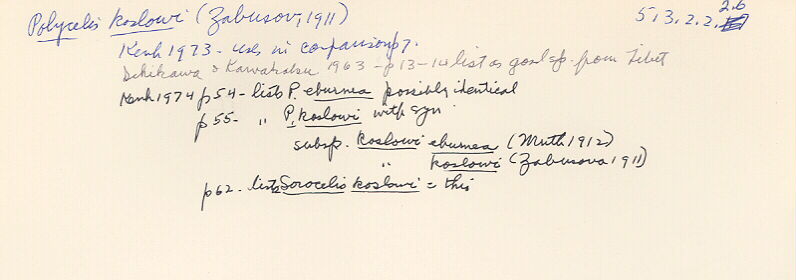 Polycelis koslowi (Zabusov, 1911) 5.3.2.2.2.6
Kenk 1973 - uses in comparison p 7.
Ichikawa & Kawakatsu 1963 - p 13-14 list as good sp. from Tibet
Kenk 1974 p 54 - lists P. eburnea possibly identical
p 55 - " P. koslowi with syn.
subsp. koslowi eburnea (Muth 1912)
" koslowi (Zabusova 1911)
p 62 - lists Sorocelis koslowi = this